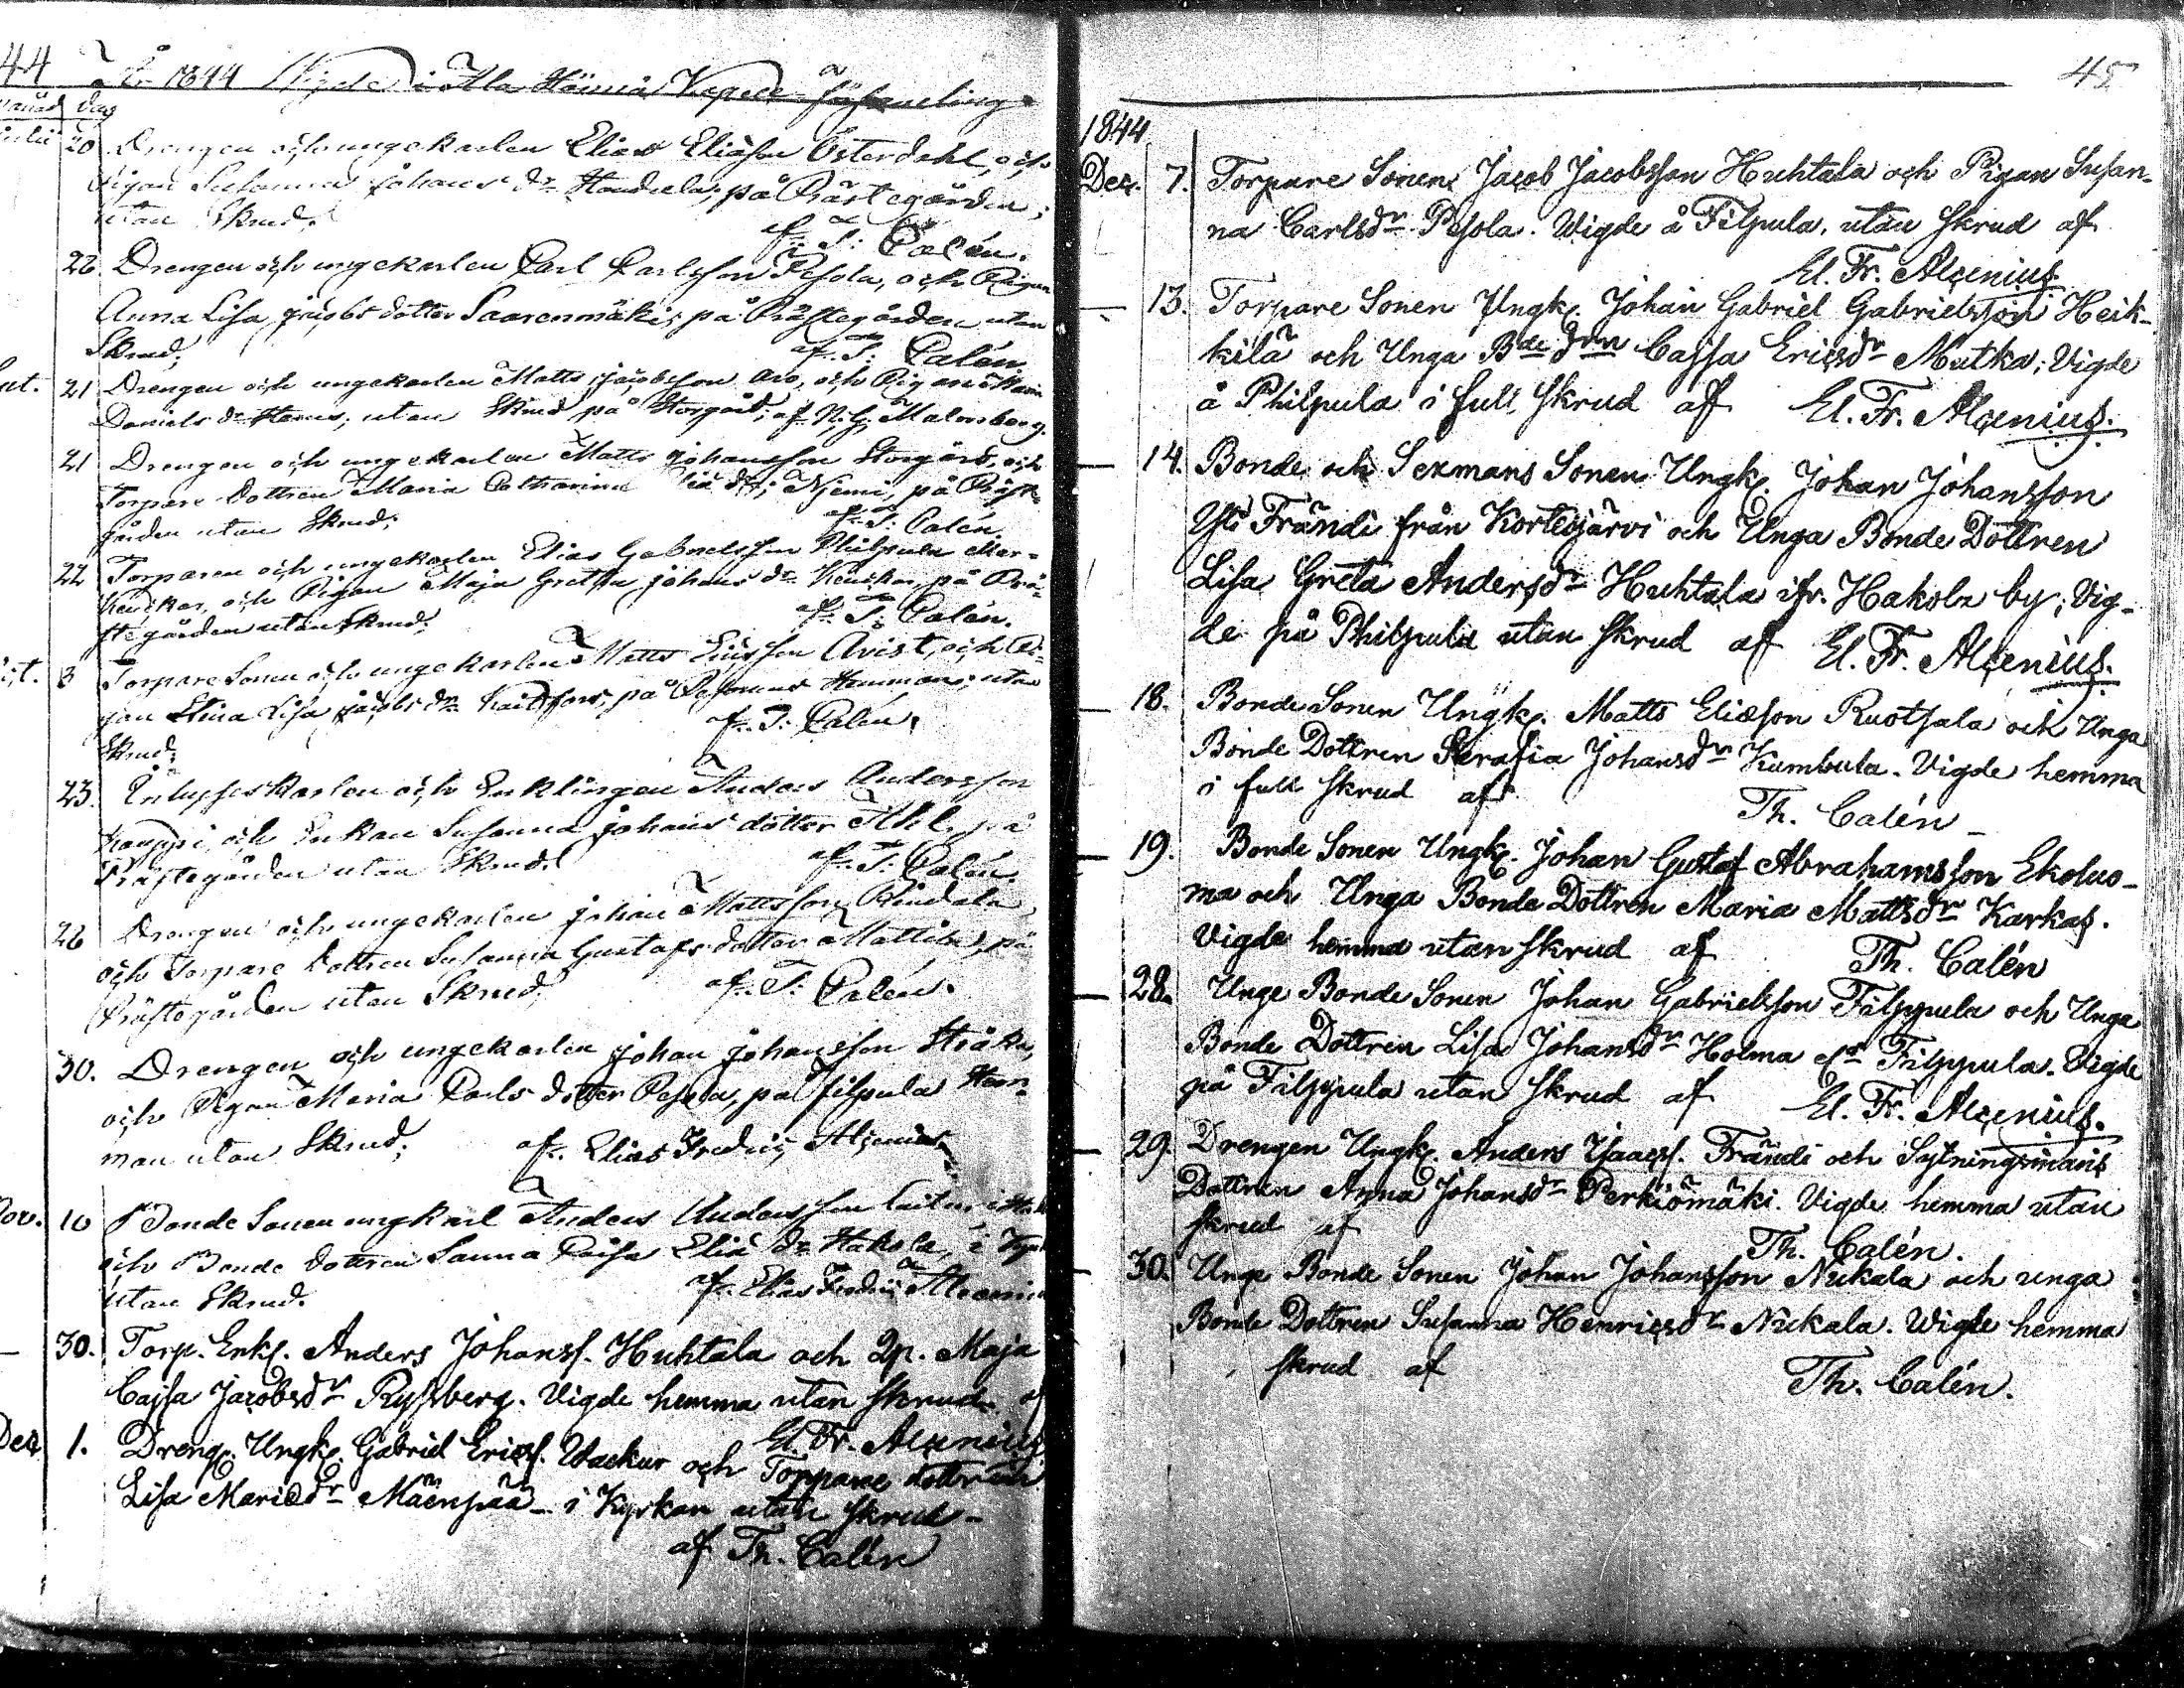 44 År 1844 Vigde i Ala Härmä Capell-församling
Månad Dag
Julii 20 Drengen och ungekarlen Elias Eliäson Österdahl, och
Pigan Susanna Johans dr på Prästegården;
utan Skrud. af T: Calén.
22. Drengen och ungekarlen Carl Carlsson Pesola, och Pigan
Anna Lisa Jacobs dotter Saarenmäki; på Prästegården utan
Skrud; af T: Calén.
21 Drengen och ungekarlen Matts Jacobsson Aro, och Pigan Maria
Daniels dr utan Skrud på Storgård; af N. G. Malmberg.
21 Drengen och ungekarlen Matts Johansson Storgård, och
Torpare Dottren Maria Catharina Eliä dr; Njemi, på Präste-
gården utan Skrud; af T: Calén.
22 Torparen och ungekarlen Elias Gabrielsson Philpula
och Pigan Maja Gretha Johans dr på Prä-
stegården utan Skrud; af T: Calén.
3 Torpare Sonen och ungekarlen Matts Eriksson Qvist, och Pi-
gan Stina Lisa Jacobs dr på Hemman; utan
Skrud; af T: Calén.
23. Inhyseskarlen och Enklingen Anders Andersson
Kauppi, och Enkan Susanna Johans dotter på
Prästegården utan Skrud. af T: Calén.
26 Drengen och ungekarlen Johan Mattsson Rindala,
och Torpare Dottren Susanna Gustafs dotter Mattila, på
Prästegården utan Skrud; af T: Calén.
30. Drengen och ungekarlen Johan Johansson
och Pigan Maria Carls dotter Pesola, på Filpula Hem-
man utan Skrud; af Elias Fredric Alcenius
Nov. 10 Bonde Sonen ungkarl Anders Andersson
och Bonde Dottren Sanna Caisa Eliä dr Hakola, i
utan Skrud. af Elias Fredric Alcenius
30. Torp. Enkl. Anders Johanss. Huhtala och Qp. Maja
Cajsa Jacobsdr Ryssberg. Vigde hemma utan skrud af
El. Fr. Alcenius.
Dec 1. Dreng. Ungk. Gabriel Ericss. Wackur och Torpare dottren
Lisa Mariedr Mäenpää i Kyrkan utan skrud -
af Th. Calén
45
1844
Dec. 7. Torpare Sonen Jacob Jacobsson Huhtala och Pigan Susan-
na Carlsdr Pesola. Wigde å Filpula, utan skrud af
El. Fr. Alcenius.
13. Torpare Sonen Ungk. Johan Gabriel Gabrielsson Heik-
kilä och Unga Bde dtrn Cajsa Ericsdr Mutka; Vigde
å Philpula i full skrud af El. Fr. Alcenius.
14. Bonde och Sexmans Sonen Ungk. Johan Johansson
Yli Frändi från Kortesjärvi och Unga Bonde Dottren
Lisa Greta Andersdr Huhtala ifr. Hakola by; Vig-
de på Philpula utan skrud af El. Fr. Alcenius.
18. Bonde Sonen Ungk. Matts Eliäson Ruotsala och Unga
Bonde Dottren Serafia Johansdr Kumbula. Vigde hemma
i full skrud af Th. Calén -
19. Bonde Sonen Ungk. Johan Gustaf Abrahamsson Ekoluo-
ma och Unga Bonde Dottren Maria Mattsdr Karkas.
Vigde hemma utan skrud af Th. Calén
28. Unge Bonde Sonen Johan Gabrielsson Filppula och Unga
Bonde Dottren Lisa Johansdr Holma elr Filppula. Vigde
på Filppula utan skrud af El. Fr. Alcenius.
29. Drengen Ungk. Anders Isaacss. Frändi och Sytningsmans
Dottren Anna Johansdr Perkiömäki. Vigde hemma utan
skrud af Th. Calén.
30. Unge Bonde Sonen Johan Johansson Nukala och unga
Bonde Dottren Susanna Henricsdr Nukala. Wigde hemma
i skrud af Th. Calén.